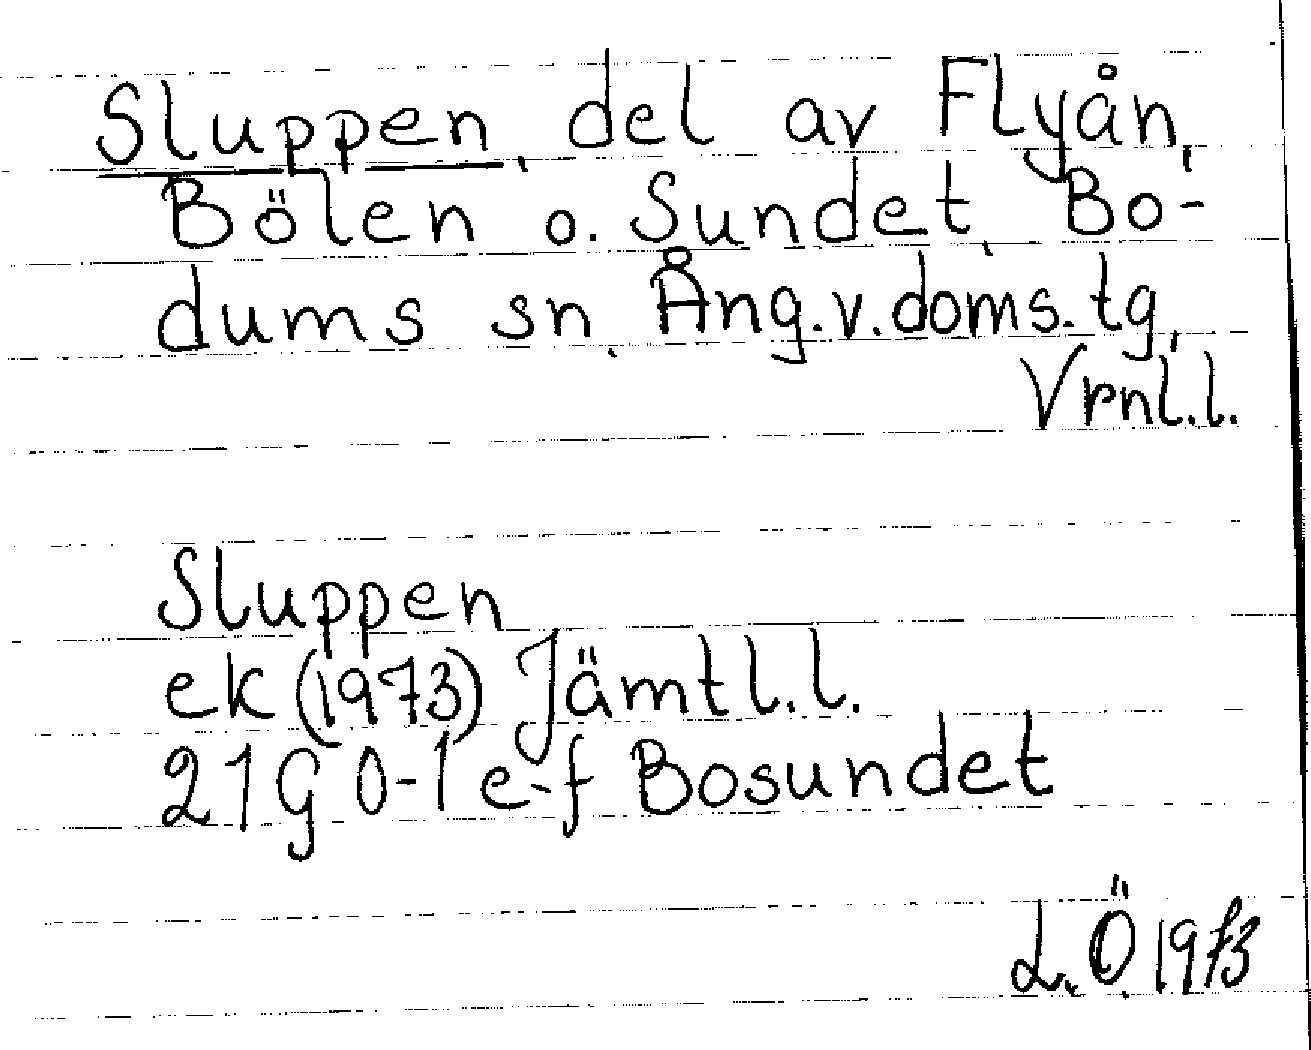 Sluppen, del av Flyån,
Bölen o. Sundet, Bo-
dums sn, Ång.v.doms.tg,
Vrnl.l.
Sluppen
ek (1973) Jämtl.l.
21G 0-1 e-f Bosundet
L.Ö. 1973